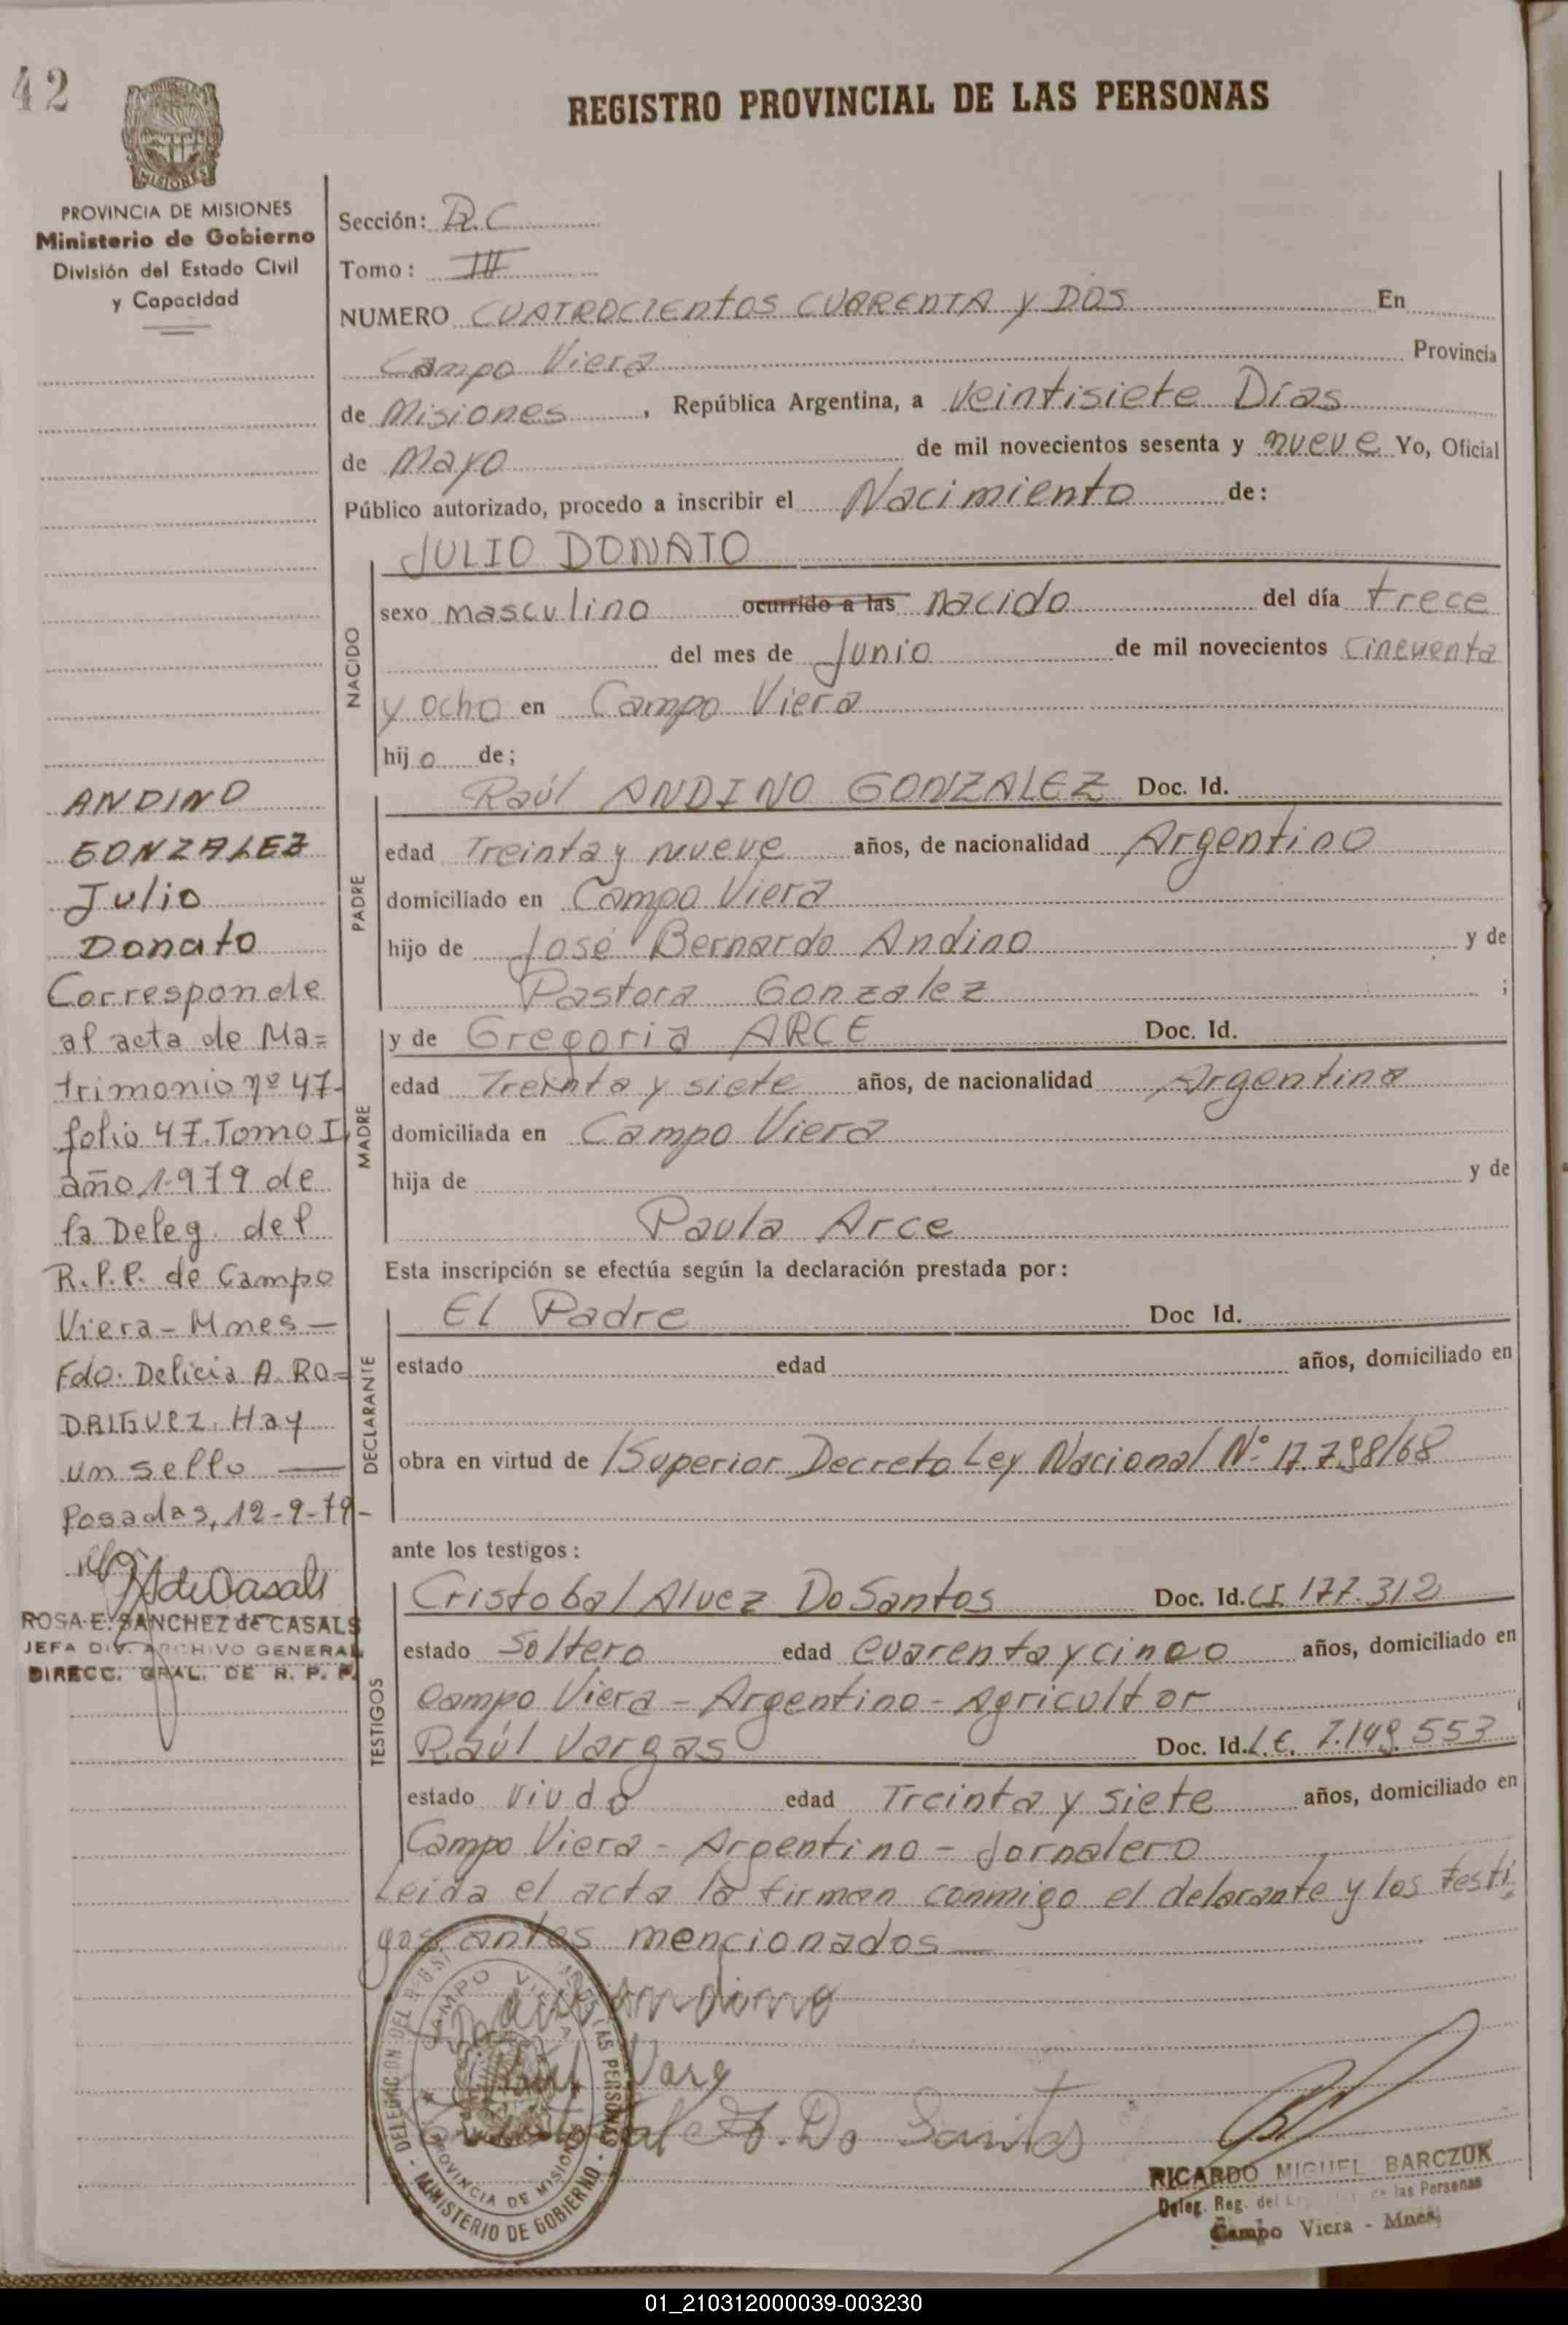 42
MISIONES
PROVINCIA DE MISIONES
Ministerio de Gobierno
División del Estado Civil
y Capacidad
REGISTRO PROVINCIAL DE LAS PERSONAS
Sección: D.C
Tomo: III
NUMERO CUATROCIENTOS CUARENTA Y DOS En
Campo Viera Provincia
de Misiones, República Argentina, a Veintisiete Días
de Mayo de mil novecientos sesenta y nueve Yo, Oficial
Público autorizado, procedo a inscribir el Nacimiento de:
NACIDO
JULIO DONATO
sexo masculino ocurrido a las nacido del día trece
del mes de Junio de mil novecientos cincuenta
y ocho en Campo Viera
hijo de;
PADRE
Raúl ANDINO GONZALEZ Doc. Id.
edad Treinta y nueve años, de nacionalidad Argentino
domiciliado en Campo Viera
hijo de José Bernardo Andino y de
Pastora Gonzalez ;
MADRE
y de Gregoria ARCE Doc. Id.
edad Treinta y siete años, de nacionalidad Argentina
domiciliada en Campo Viera
hija de y de
Paula Arce
Esta inscripción se efectúa según la declaración prestada por:
DECLARANTE
El Padre Doc Id.
estado edad años, domiciliado en
obra en virtud de /Superior Decreto Ley Nacional Nº 17.798/68
ante los testigos:
TESTIGOS
Cristobal Alvez Do Santos Doc. Id. C.I. 177.312
estado Soltero edad cuarenta y cinco años, domiciliado en
Campo Viera - Argentino - Agricultor
Raúl Vargas Doc. Id. L.E. 7.149.553
estado Viudo edad Treinta y siete años, domiciliado en
Campo Viera - Argentino - Jornalero
Leida el acta la firman conmigo el delarante y los testi
gos antes mencionados
Andino
Varg
A. Do Santos
DELEGACION DEL LAS PERSONAS
CAMPO VIERA
PROVINCIA DE MISIONES
MINISTERIO DE GOBIERNO
RICARDO MIGUEL BARCZUK
Deleg. Reg. del de las Personas
Campo Viera - Mnes.
ANDINO
GONZALEZ
Julio
Donato
Corresponde
al acta de Ma=
trimonio nº 47-
folio 47.Tomo I,
año 1.979 de
la Deleg. del
R.P.P. de Campo
Viera - Mnes -
Fdo. Delicia A. RO=
DRIGUEZ. Hay
un sello
Posadas, 12-9-79-
ROSA E. SANCHEZ de CASALS
JEFA DIV. ARCHIVO GENERAL
DIRECC. GRAL. DE R. P. P.
01_210312000039-003230